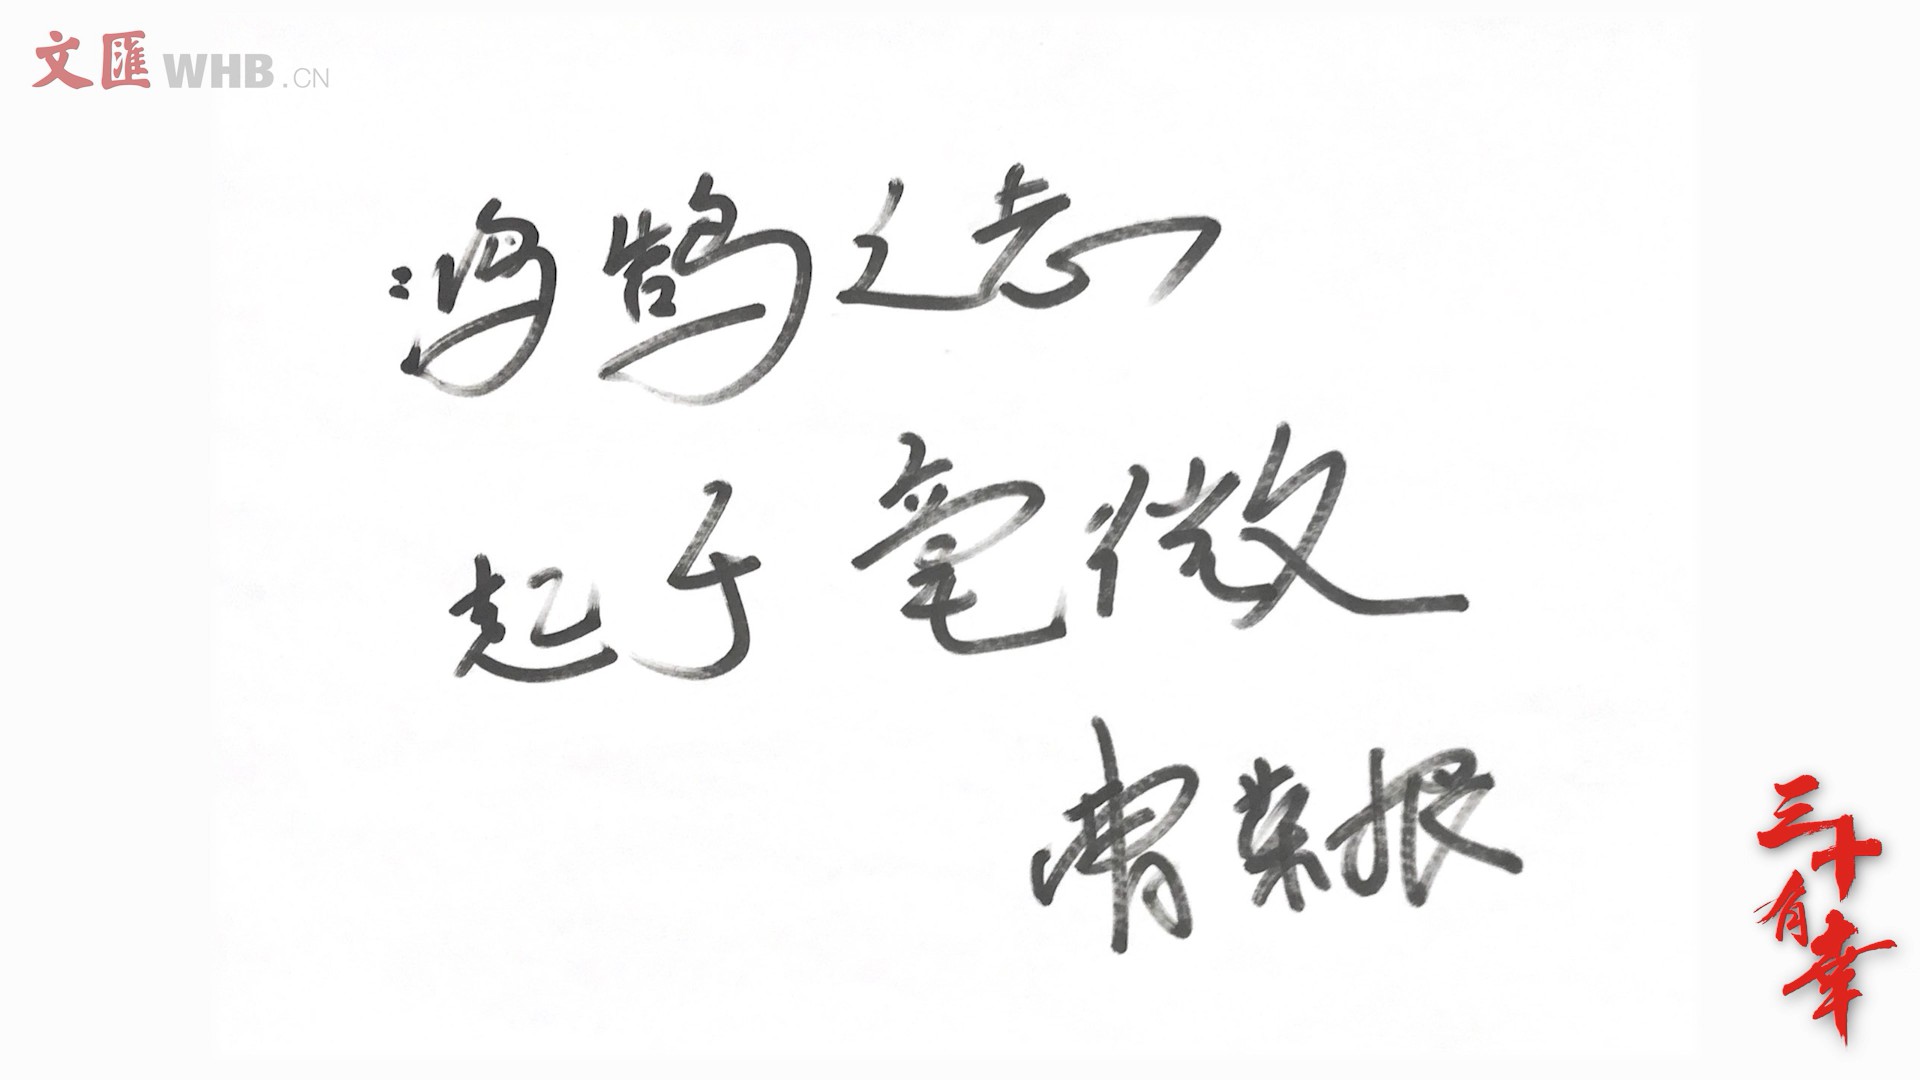 文匯 WHB.CN
鸿鹄之志
起于毫微
曹荣根
三十
有幸